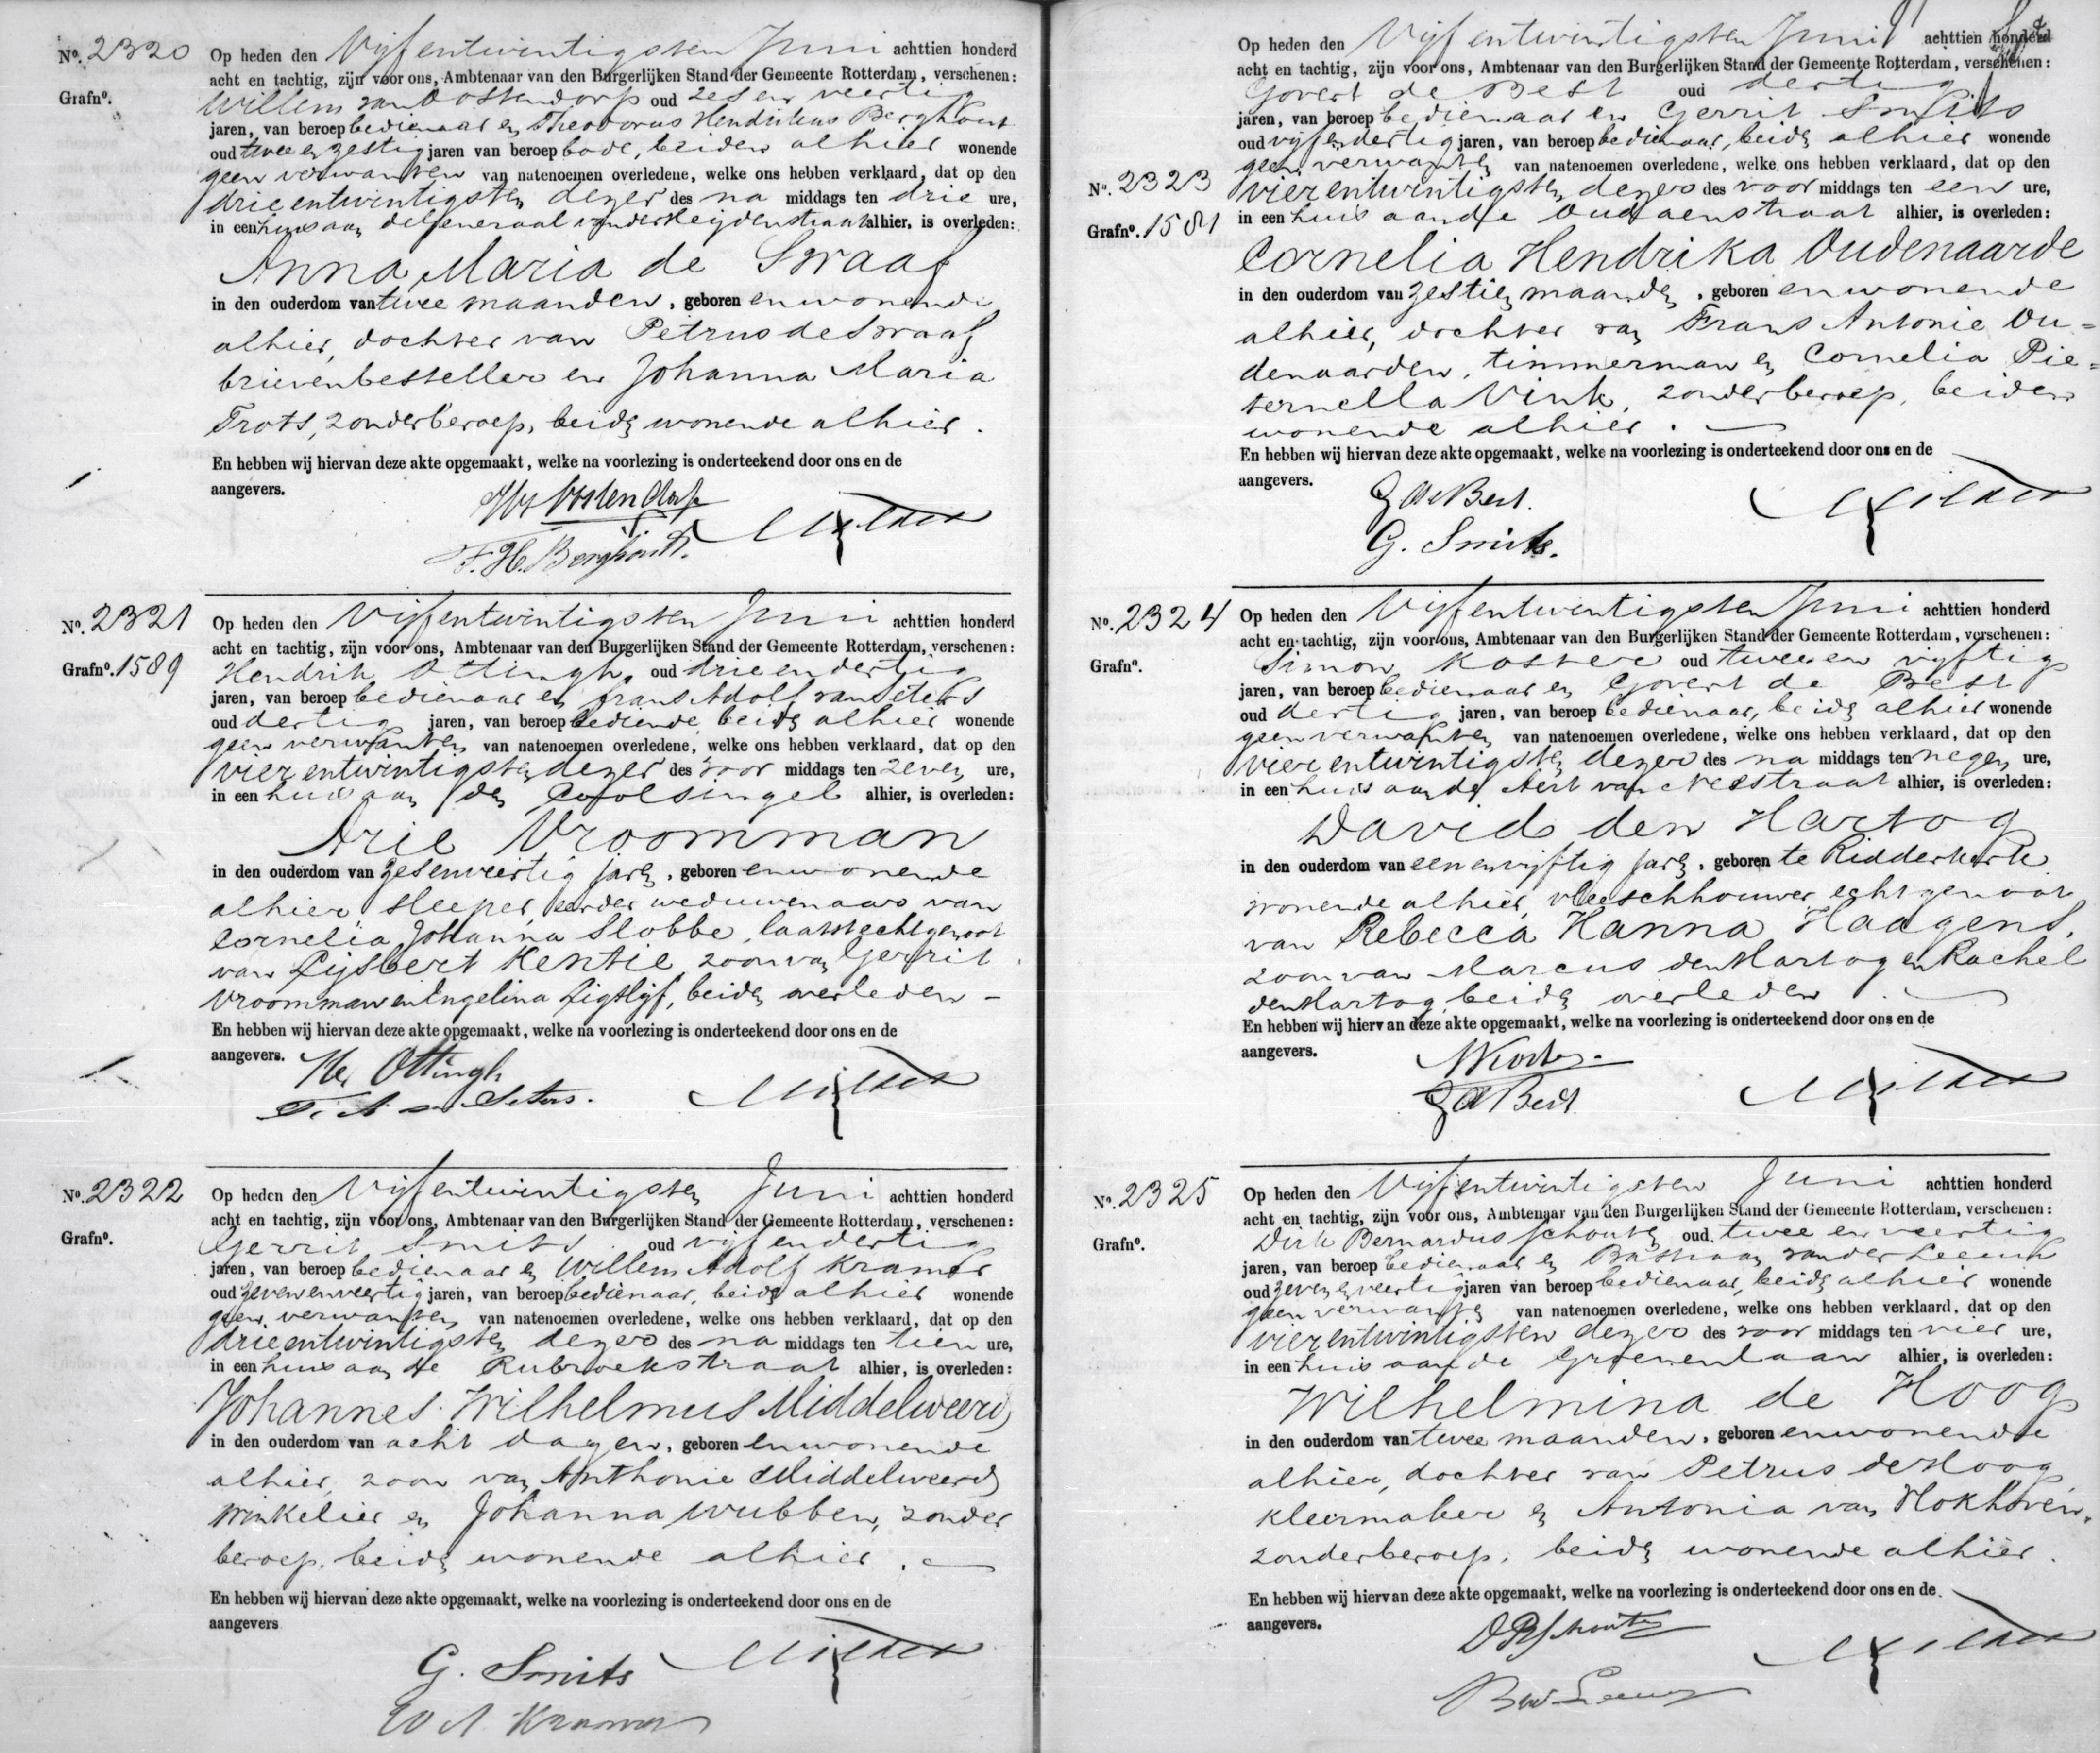 No. 2320
Op heden den Vijfentwintigsten Juni achttien honderd
acht en tachtig, zijn voor ons, Ambtenaar van den Burgerlijken Stand der Gemeente Rotterdam, verschenen:
Grafno.
Willem van Oostendorp oud zesenveertig
jaren, van beroep bedienaar en Theodorus Hendrikus Berghout
oud twee en zestig jaren van beroep bode, beiden alhier wonende
geen verwanten van natenoemen overledene, welke ons hebben verklaard, dat op den
drieentwintigsten dezer des na middags ten drie ure,
in een huis aan de Generaal van der Heijdenstraat alhier, is overleden:
Anna Maria de Swaaf
in den ouderdom van twee maanden, geboren en wonende
alhier, dochter van Petrus de Swaaf
brievenbesteller en Johanna Maria
Trots, zonder beroep, beiden wonende alhier.
En hebben wij hiervan deze akte opgemaakt, welke na voorlezing is onderteekend door ons en de
aangevers.
T. H. Berghout.
No. 2321
Op heden den Vijfentwintigsten Juni achttien honderd
acht en tachtig, zijn voor ons, Ambtenaar van den Burgerlijken Stand der Gemeente Rotterdam, verschenen:
Grafno. 1589
Hendrik Ottingh, oud drieendertig
jaren, van beroep bedienaar en Frans Adolf van Seters
oud dertig jaren, van beroep bediende, beiden alhier wonende
geen verwanten van natenoemen overledene, welke ons hebben verklaard, dat op den
vierentwintigsten dezer des voor middags ten zeven ure,
in een huis aan den Coolsingel alhier, is overleden:
Arie Vroomman
in den ouderdom van zesenveertig jaren, geboren en wonende
alhier, sleeper, eerder weduwenaar van
Cornelia Johanna Slobbe, laatst echtgenoot
van Lijsbert Kentie, zoon van Gerrit
Vroomman en Engelina Ligtlijf, beiden overleden -
En hebben wij hiervan deze akte opgemaakt, welke na voorlezing is onderteekend door ons en de
aangevers.
Ottingh
F. A. v. Seters.
No. 2322
Op heden den Vijfentwintigsten Juni achttien honderd
acht en tachtig, zijn voor ons, Ambtenaar van den Burgerlijken Stand der Gemeente Rotterdam, verschenen:
Grafno.
Gerrit Smits oud vijfendertig
jaren, van beroep bedienaar en Willem Adolf Kramer
oud zevenenveertig jaren, van beroep bedienaar, beiden alhier wonende
geen verwanten van natenoemen overledene, welke ons hebben verklaard, dat op den
drieentwintigsten dezer des na middags ten tien ure,
in een huis aan de Rubroekstraat alhier, is overleden:
Johannes Wilhelmus Middelweerd
in den ouderdom van acht dagen, geboren en wonende
alhier, zoon van Anthonie Middelweerd
winkelier en Johanna Wubben, zonder
beroep, beiden wonende alhier.
En hebben wij hiervan deze akte opgemaakt, welke na voorlezing is onderteekend door ons en de
aangevers
G. Smits
W A Kramer
Op heden den Vijfentwintigsten Juni achttien honderd
acht en tachtig, zijn voor ons, Ambtenaar van den Burgerlijken Stand der Gemeente Rotterdam, verschenen:
Govert de Best oud dertig
jaren, van beroep bedienaar en Gerrit Smits
oud vijfendertig jaren, van beroep bedienaar, beiden alhier wonende
geen verwanten van natenoemen overledene, welke ons hebben verklaard, dat op den
No. 2323
vierentwintigsten dezer des voor middags ten een ure,
Grafno. 1581
in een huis aan de Oudaenstraat alhier, is overleden:
Cornelia Hendrika Oudenaarde
in den ouderdom van zestien maanden, geboren en wonende
alhier, dochter van Frans Antonie Ou=
denaarden, timmerman en Cornelia Pie=
ternella Vink, zonder beroep, beiden
wonende alhier.
En hebben wij hiervan deze akte opgemaakt, welke na voorlezing is onderteekend door ons en de
aangevers.
G de Best.
G. Smits.
No. 2324
Op heden den Vijfentwintigsten Juni achttien honderd
acht en tachtig, zijn voor ons, Ambtenaar van den Burgerlijken Stand der Gemeente Rotterdam, verschenen:
Grafno.
Simon Koster oud tweeen vijftig
jaren, van beroep bedienaar en Govert de Best
oud dertig jaren, van beroep bedienaar, beiden alhier wonende
geen verwanten van natenoemen overledene, welke ons hebben verklaard, dat op den
vierentwintigsten dezer des na middags ten negen ure,
in een huis aan de Aert van Nesstraat alhier, is overleden:
David den Hartog
in den ouderdom van eenenvijftig jaren, geboren te Ridderkerk
wonende alhier, vleeschhouwer, echtgenoot
van Rebecca Hanna Haagens,
zoon van Marcus den Hartog en Rachel
den Hartog, beiden overleden.
En hebben wij hiervan deze akte opgemaakt, welke na voorlezing is onderteekend door ons en de
aangevers.
G de Best
No. 2325
Op heden den Vijfentwintigsten Juni achttien honderd
acht en tachtig, zijn voor ons, Ambtenaar van den Burgerlijken Stand der Gemeente Rotterdam, verschenen:
Grafno.
Dirk Bernardus Schouten oud twee en veertig
jaren, van beroep bedienaar en Bastiaan van der Leeuw
oud zeven en veertig jaren van beroep bedienaar, beiden alhier wonende
geen verwanten van natenoemen overledene, welke ons hebben verklaard, dat op den
vierentwintigsten dezer des voor middags ten vier ure,
in een huis aan de Groenenlaan alhier, is overleden:
Wilhelmina de Hoog
in den ouderdom van twee maanden, geboren en wonende
alhier, dochter van Petrus de Hoog
kleermaker en Antonia van Hokhoven,
zonder beroep, beiden wonende alhier.
En hebben wij hiervan deze akte opgemaakt, welke na voorlezing is onderteekend door ons en de
aangevers.
D B Schouten
B vd Leeuw